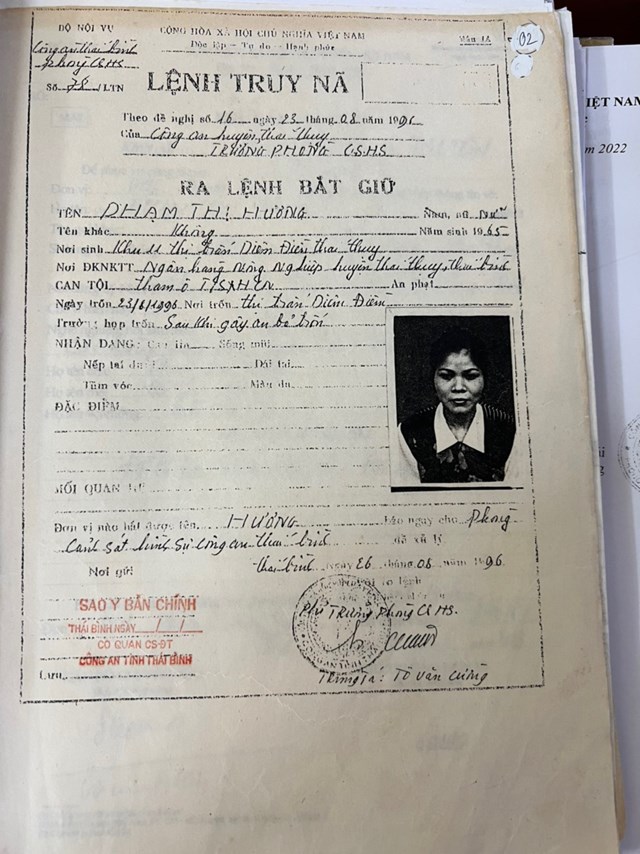 BỘ NỘI VỤ
CỘNG HÒA XÃ HỘI CHỦ NGHĨA VIỆT NAM
Độc lập - Tự do - Hạnh phúc
Công an thái bình
phòng CSHS
Số 78 /LTN
02
LỆNH TRUY NÃ
Theo đề nghị số 16 ngày 23 tháng 08 năm 1996
Của Công an huyện thái thụy
TRƯỞNG PHÒNG C.S.H.S
RA LỆNH BẮT GIỮ
TÊN PHẠM THỊ HƯƠNG Nam, nữ Nữ
Tên khác Không Năm sinh 1965
Nơi sinh Khu II thị trấn Diêm Điền thái thụy
Nơi ĐKNKTT Ngân hàng Nông Nghiệp huyện thái thụy, thái bình
CAN TỘI tham ô TSXHCN Án phạt
Ngày trốn 23/6/1996 Nơi trốn thị trấn Diêm Điền
Trường hợp trốn Sau khi gây án bỏ trốn
NHẬN DẠNG: Cao Sống mũi
Nếp tai dưới Dái tai
Tầm vóc Màu da
ĐẶC ĐIỂM
MỐI QUAN HỆ
Đơn vị nào bắt được tên HƯƠNG báo ngay cho Phòng
Cảnh sát hình sự công an thái bình để xử lý
Nơi gửi thái bình ngày 26 tháng 08 năm 1996
Người ra lệnh
Phó Trưởng phòng CSHS.
SAO Y BẢN CHÍNH
THÁI BÌNH NGÀY / /
CƠ QUAN CS-ĐT
CÔNG AN TỈNH THÁI BÌNH
Lưu
Trung Tá: Tô Văn Cường
VIỆT NAM
năm 2022